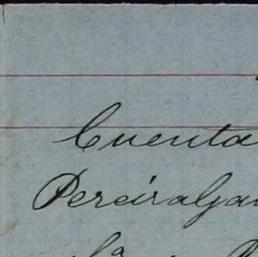 Cuenta
Pereira Ga